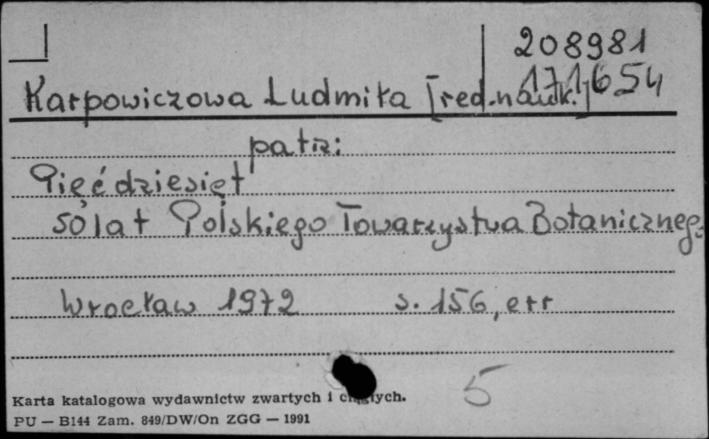 208981
171654
Karpowiczowa Ludmiła [red.nauk.]
patrz:
Pięćdziesięt
50 lat Polskiego Towarzystwa Botanicznego
Wrocław 1972 s. 156, err
5
Karta katalogowa wydawnictw zwartych i ciągłych.
PU — B144 Zam. 849/DW/On ZGG — 1991